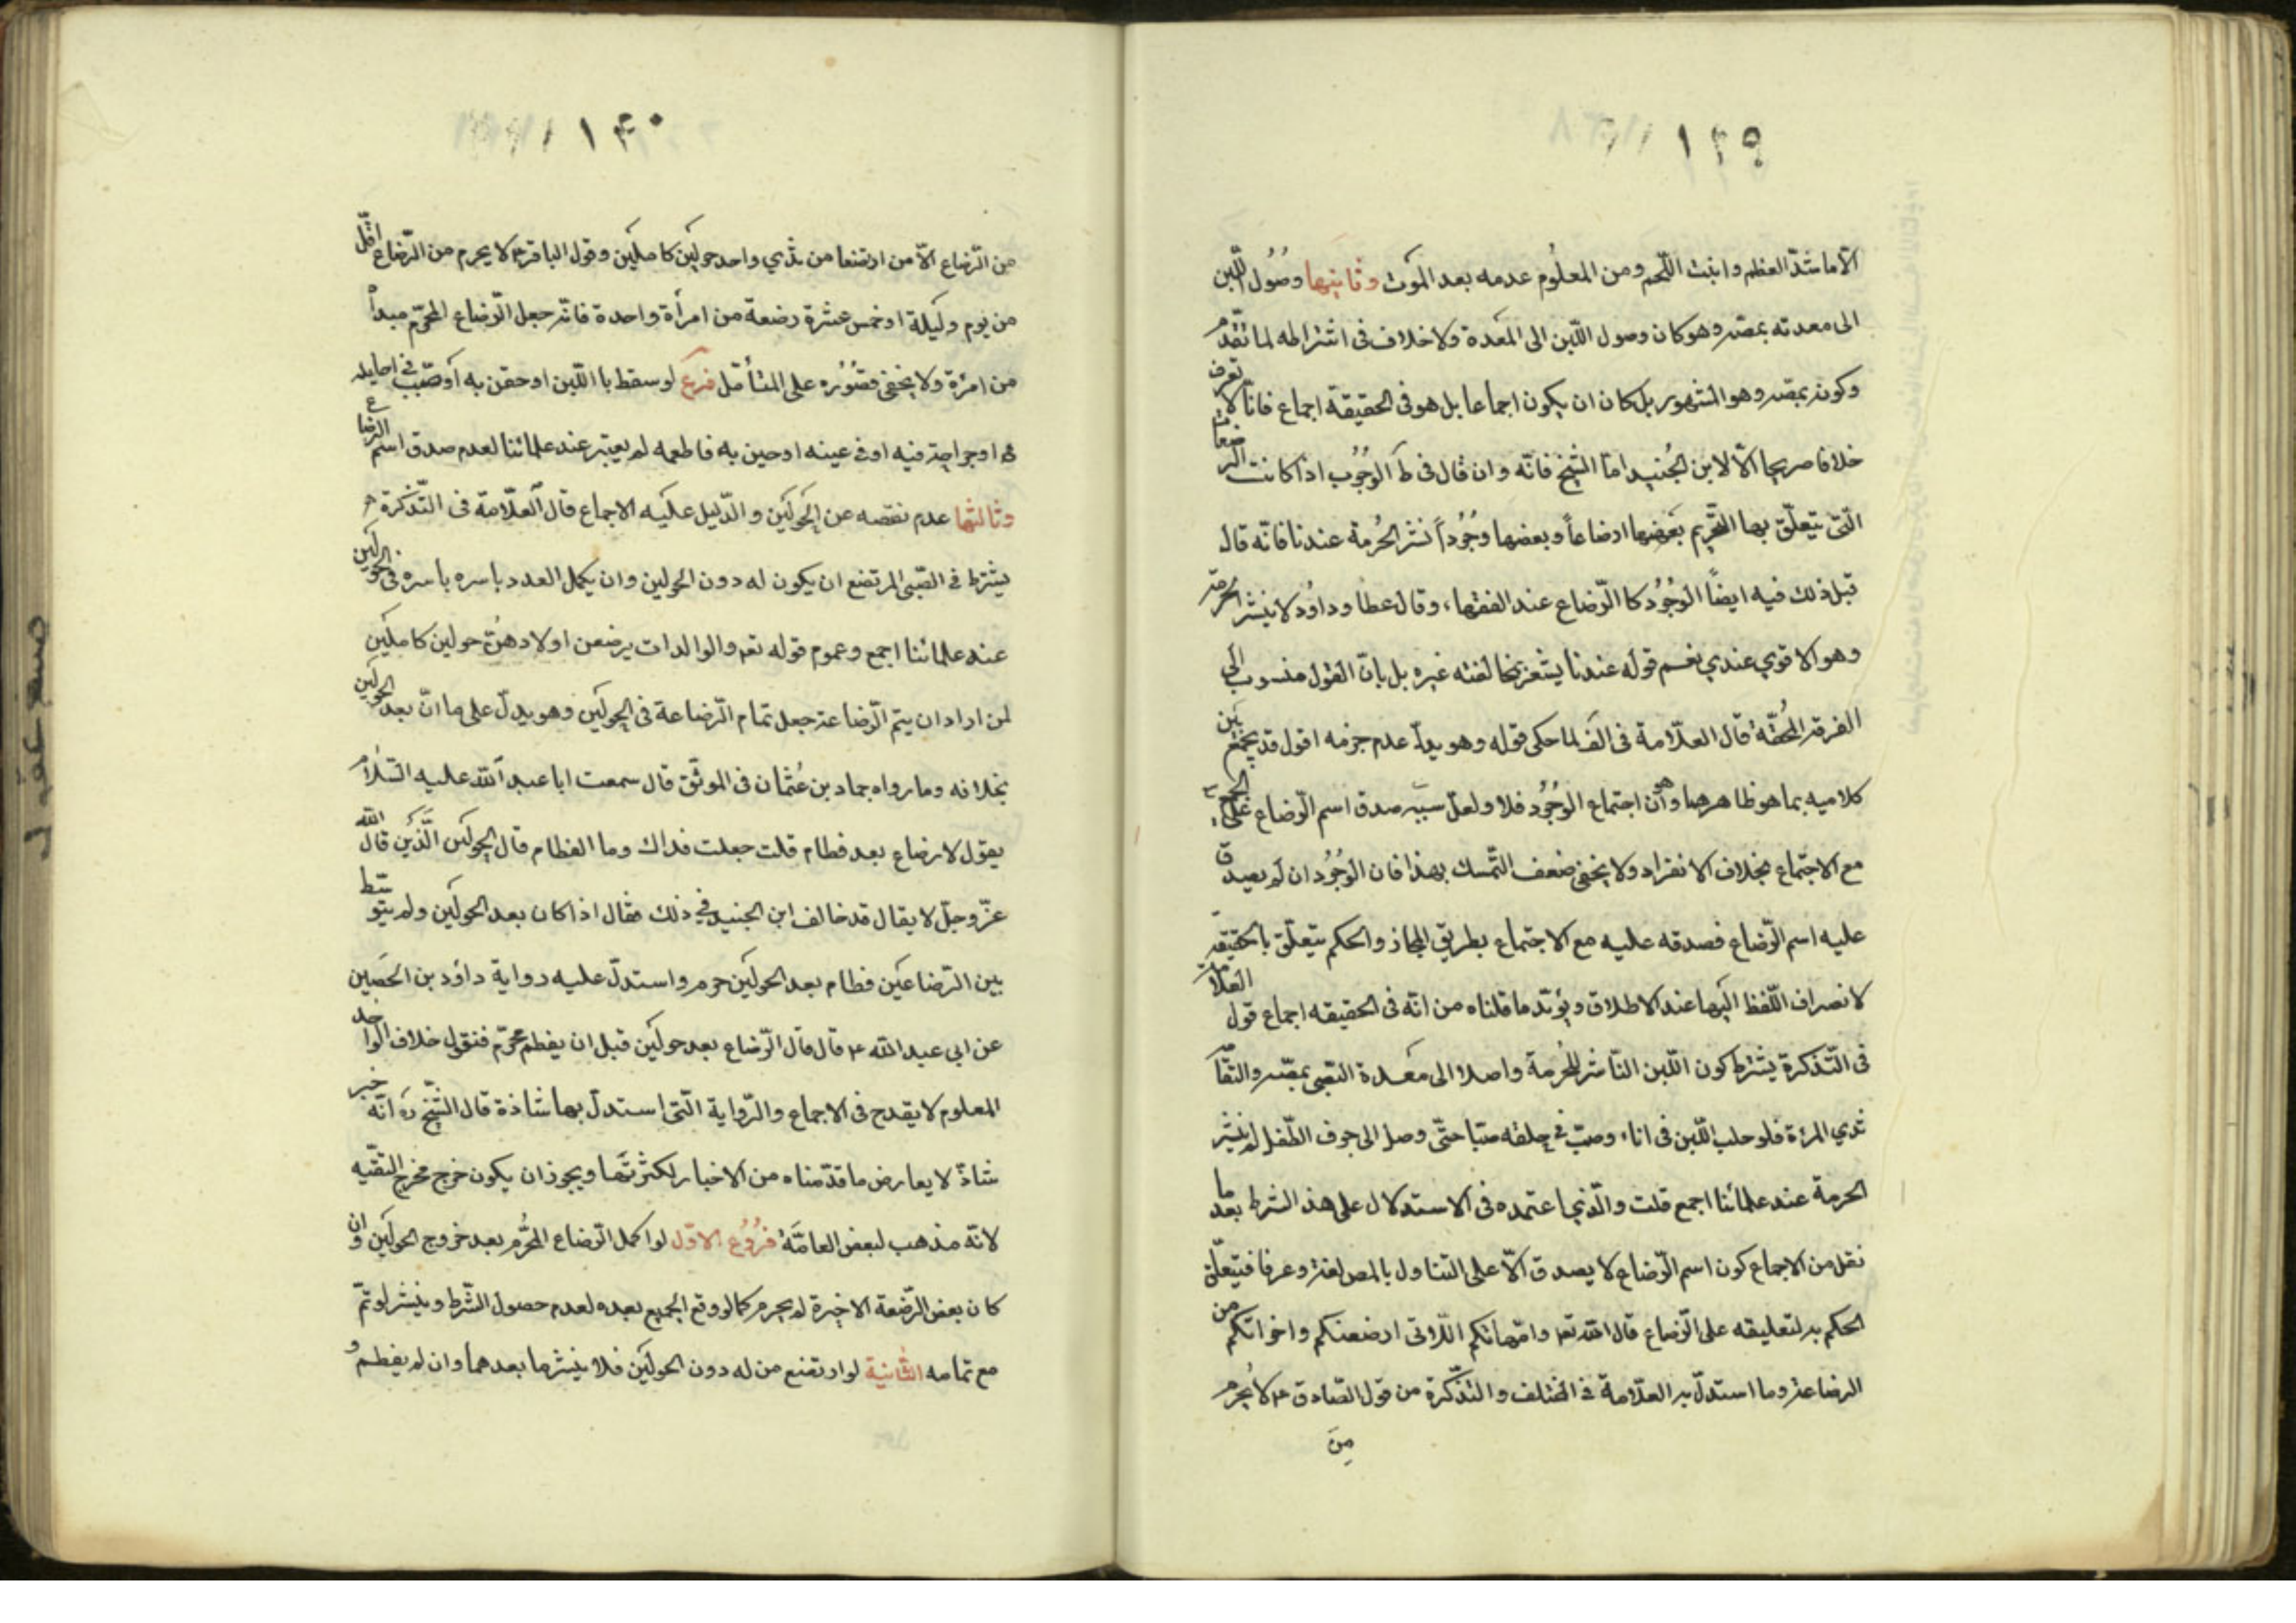 ١٣٩
الّا ما شدّ العظم وانبت اللّحم ومن المعلُوم عدمه بعد الموَت وثانيَتها وصُول اللّبن
الى معدته بمصّه وهو كان وصول اللّبن الى المعَدة ولا خلاف فى اشتراطه لما تقدّم
وكونه بمصّه وهو المشهور بل كان ان يكون اجماعا بل هو فى الحقيقة اجماع فانّا لا نعرف
خلافا صريحا الّا لابن الجُنيد امّا الشيخ فانّه وان قال فى ط الوَجُوب اذا كانت الرضعات
الّتى يتعلّق بها التّحريم بَعَضها ارضاعاً وبعضها وجُوُراً نشر الحُرمة عندنا فانّه قال
قبل ذلك فيه ايضاً الوُجُوُر كالرّضاع عند الفقهاء وقال عطا وداوُد لا ينشر الحرمة
وهو الاقوي عندي نعم قوله عندنا يشعر بمخالفته غيره بل بانّ القول منسوب الى
الفرقة المُحقّة قال العلّامة فى الَف لما حكى قوله وهو يدلّ عدم جزمه اقول قد يجمع بَين
كلاميه بما هو ظاهرهما وهو أنّ اجتماع الوجُوُر فلا ولعلّ سببَه صدق اسم الرّضاع على الجميع
مع الاجتماع بخلاف الانفراد ولا يخفى ضعف التّمسك بهذا فان الوُجُوُر ان لم يصدق
عليه اسم الرّضاع فصدقه عليه مع الاجتماع بطريق المجاز والحكم يتعلّق بالحقيقة
لانصراف اللّفظ اليَها عند الاطلاق ويؤيّد ما قلناه من انّه فى الحقيقه اجماع قول العلامة
فى التّذكرة يشترط كون اللّبن النّاشر للحُرمة واصلا الى معَدة الصّبى بمصّه والتقا
ثدي المرءة فلو حلب اللّبن فى اناء وصبّ فى حلقه صبّا حتّى وصل الى جوف الطّفل لم ينشر
الحرمة عند علمائنا اجمع قلت والّذي اعتمده فى الاستدلال على هذ الشرط بعد ما
نقل من الاجماع كون اسم الرّضاع لا يصدق الّا على التناول بالمص لغة وعرفا فيتعلّق
الحكم به لتعليقه على الرّضاع قال الله تعم وامّهاتكم اللّاتى ارضعنكم واخواتكم من
الرضاعة وما استدلّ به العلّامة فى المختلف والتّذكرة من قول الصّادق ع لا يُحرم
مِنَ
١٤٠
من الرّضاع الّا من ارتضعا من ثدي واحد حولَين كاملين وقول الباقر ع لا يحرم من الرّضاع اقلّ
من يوم وليَلة او خمس عشرة رضعة من امرأة واحدة فانّه جعل الرّضاع المحرّم مبدأ
من امرءة ولا يخفى قصُوُره على المتأمّل فرع لو سقط با اللّبن او حقن به اوَ صّبَب فى احايله
او جراحة فيه او فى عينه او حين به فاطعمه لم يعتبر عند علمائنا لعدم صدق اسم الرضاع
وثالثها عدم نقصه عن الحولَين والدّليل عليَه الاجماع قال العلّامة فى التّذكرة
يشترط فى الصّبى المرتضع ان يكون له دون الحولين وان يكمل العدد باسره باسره فى الحولَين
عند علمائنا اجمع وعموم قوله تعم والوالدات يرضعن اولادهُنّ حولين كاملَين
لمن اراد ان يتم الرّضاعة جعل تمام الرّضاعة فى الحولَين وهو يدلّ على ما انّ بعد الحولَين
بخلافه وما رواه حماد بن عُثمان فى الموثّق قال سمعت ابا عبد الله عليه السّلام
يقول لا رضاع بعد فطام قلت جعلت فداك وما الفطام قال الحولَين الّذَين قال الله
عزّ وجلّ لا يقال قد خالف ابن الجنيد فى ذلك فقال اذا كان بعد الحولَين ولم يتوسّط
بين الرّضاعَين فطام بعد الحولَين حرم واستدلّ عليه رواية داؤد بن الحصَين
عن ابى عبد الله ع قال قال الرّضاع بعد حولَين قبل ان يفطم محرّم فنقول خلاف الواحد
المعلوم لا يقدح فى الاجماع والرّواية الّتى استدلّ بها شاذة قال الشّيخ ره انّه خبر
شاذّ لا يعارض ما قدّمناه من الاخبار لكثرتها ويجوز ان يكون خرج مخرج التقيّه
لانّه مذهب لبعض العامّة فروُع الاوّل لو اكمل الرّضاع المُحرّم بعد خروج الحولَين وان
كان بعض الرّضعة الاخيرة لم يحرم كما لو وقع الجميع بعده لعدم حصول الشّرط وينشر لو تمّ
مع تمامه الثّانية لو ارتضع من له دون الحولَين فلا ينشر ما بعدهما وان لم يفطم و